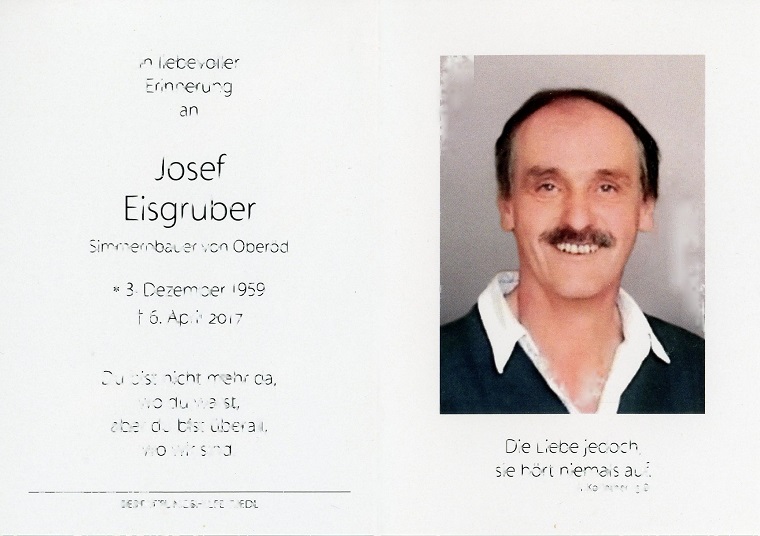 In liebevoller
Erinnerung
an
Josef
Eisgruber
Simmernbauer von Oberöd
* 3. Dezember 1959
† 6. April 2017
Du bist nicht mehr da,
wo du warst,
aber du bist überall,
wo wir sind.
Die Liebe jedoch,
sie hört niemals auf.